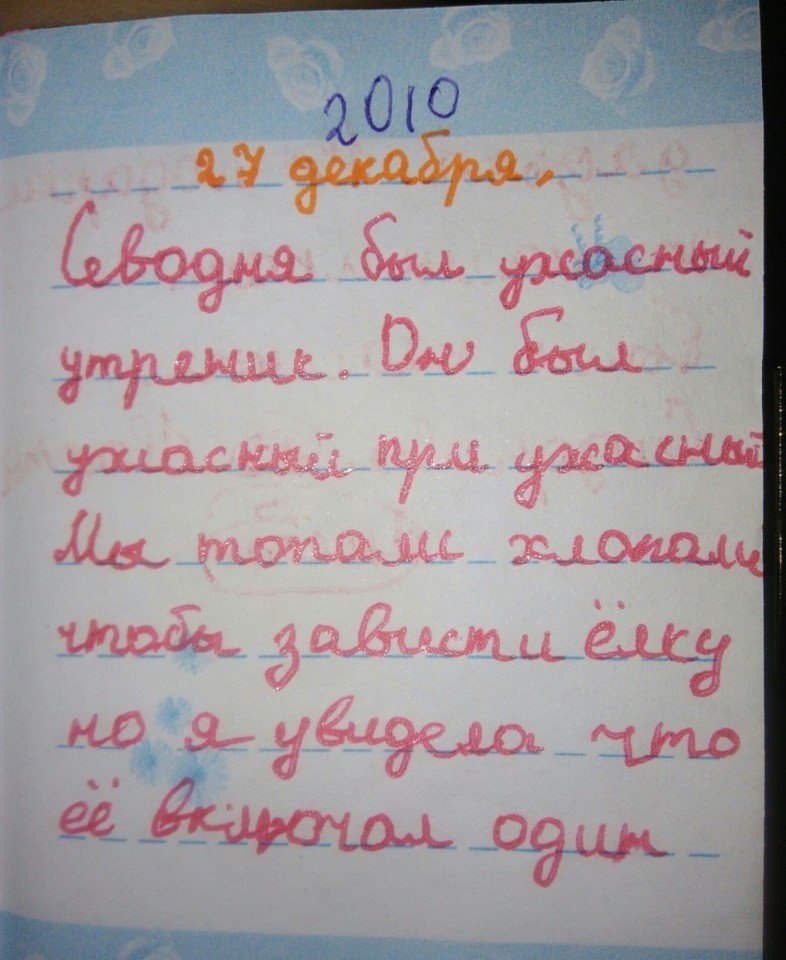 2010
27 декабря,
Севодня был ужасный
утреник. Он был
ужасный при ужасный
Мы топали хлопали
чтобы зависти ёлку
но я увидела что
её включал один